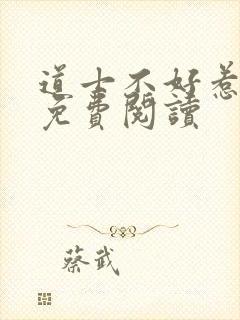 道士不好惹
免費閱讀
蔡武